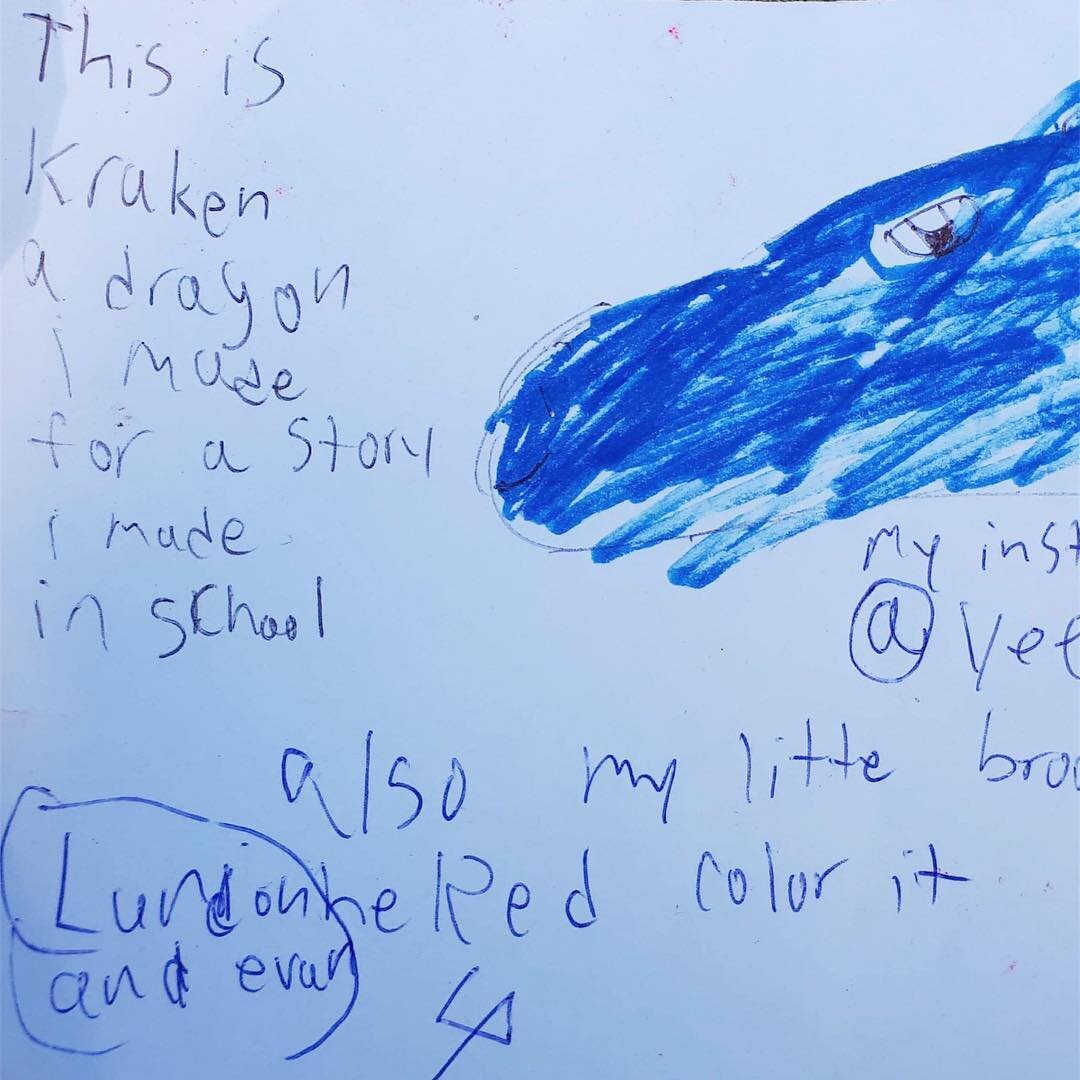 This is
Kraken
a dragon
i made
for a story
i made
in school
my inst
@yee
also my litte broo
Lundon heked color it
and evan